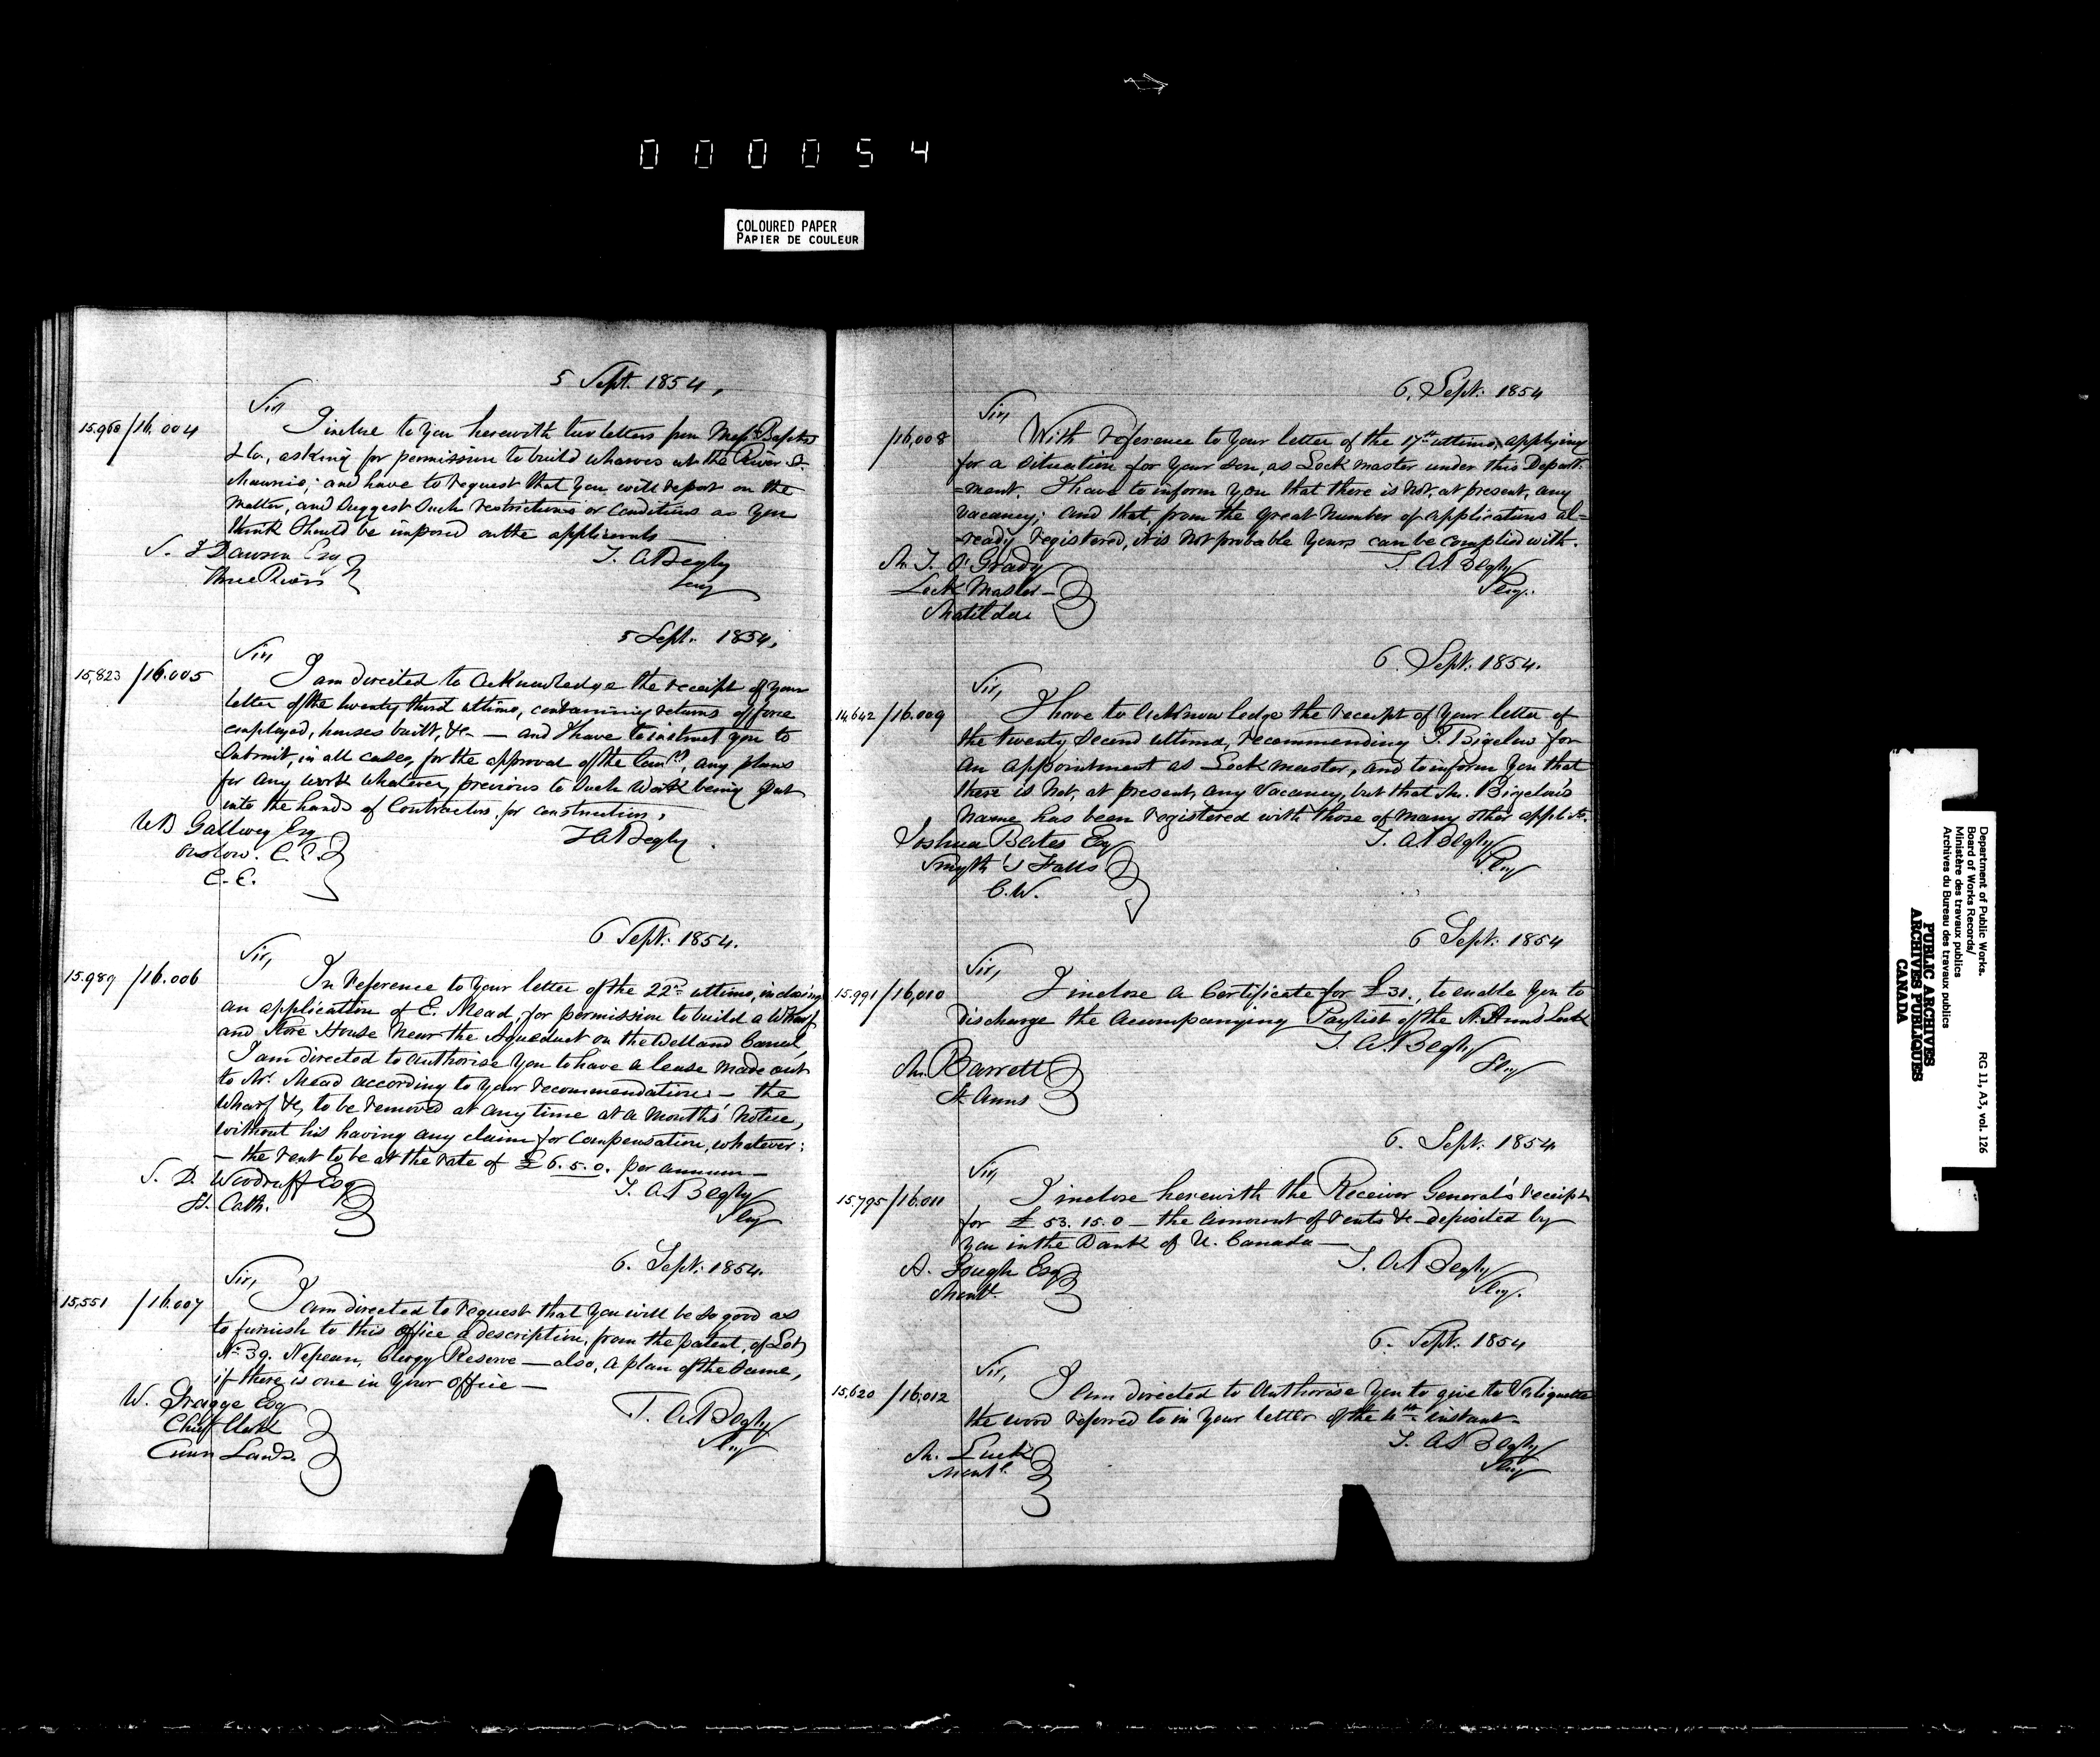 000054
COLOURED PAPER
PAPIER DE COULEUR
5 Sept. 1854,
Sir
15.960/16.004
I inclose to you herewith two letters from Messrs Baptist
& Co, asking for permission to build wharves at the River St.
Maurice; and have to request that you will report on the
matter, and suggest such restrictions or conditions as you
think should be imposed on the applicants —
S. J Dawson Esq
Three Rivers
T. A Begly
Secy
5 Sept. 1854,
Sir,
15,823 /16.005
I am directed to acknowledge the receipt of your
letter of the twenty third ultimo, containing returns of force
employed, houses built, &c — and I have to instruct you to
submit, in all cases, for the approval of the Comrs, any plans
for any work whatever, previous to such work being put
into the hands of Contractors, for construction,
WB Gallwey Esq
Onslow. C.E.
C.E.
T A Begly.
6 Sept. 1854.
Sir,
15.989 /16.006
In reference to your letter of the 22nd ultimo, inclosing
an application of E. Mead, for permission to build a Wharf
and Store House near the Aqueduct on the Welland Canal,
I am directed to authorise you to have a lease made out
to Mr. Mead according to your recommendation: — the
wharf &c, to be removed at any time at a months' notice,
without his having any claim for compensation, whatever:
— the rent to be at the rate of £6.5.0. per annum —
S. D. Woodruff Esq
St. Cath.
T. A. Begly
Secy
6. Sept. 1854.
Sir,
15,551 /16.007
I am directed to request that you will be so good as
to furnish to this office a description, from the patent, of Lot
No 39. Nepean, Clergy Reserve — also, a plan of the same,
if there is one in your office —
W. Spragge Esq
Chief Clerk
Crown Lands.
T. A. Begly
Secy
6. Sept. 1854
Sir,
/16,008
With reference to your letter of the 17th ultimo, applying
for a situation for your son, as Lock master under this Depart-
=ment. I have to inform you that there is not, at present, any
vacancy; and that, from the great number of applications al=
=ready registered, it is not probable yours can be complied with.
Mr. J. O'Grady
Lock Master —
Matilda
T. A Begly
Secy.
6. Sept. 1854.
Sir,
14,642 /16.009
I have to acknowledge the receipt of your letter of
the twenty second ultimo, recommending J. Bigelow for
an appointment as Lock master, and to inform you that
there is not, at present, any vacancy, but that Mr. Bigelow's
name has been registered with those of many other applicts.
Joshua Bates Esq
Smyth's Falls
C.W.
T. A Begly
Secy
6 Sept. 1854
Sir,
15.991 /16,010
I inclose a Certificate for £31., to enable you to
discharge the accompanying Paylist of the St. Anns Lock
Mr. Barrett
St. Anns
T. A. Begly
Secy
6. Sept. 1854
Sir,
15.795/16.011
I inclose herewith the Receiver General's receipt
for £53.15.0 — the amount of rents &c deposited by
you in the Bank of U. Canada —
A. Gough Esq
Montl.
T. A Begly
Secy.
6. Sept. 1854
Sir,
15,620 /16,012
I am directed to authorise you to give to Valiquette
the wood referred to in your letter of the 4th instant —
Mr. Luck
Montl.
T. A Begly
Secy
Department of Public Works.
Board of Works Records/
Ministère des travaux publics
Archives du Bureau des travaux publics
RG 11, A3, vol. 126
PUBLIC ARCHIVES
ARCHIVES PUBLIQUES
CANADA